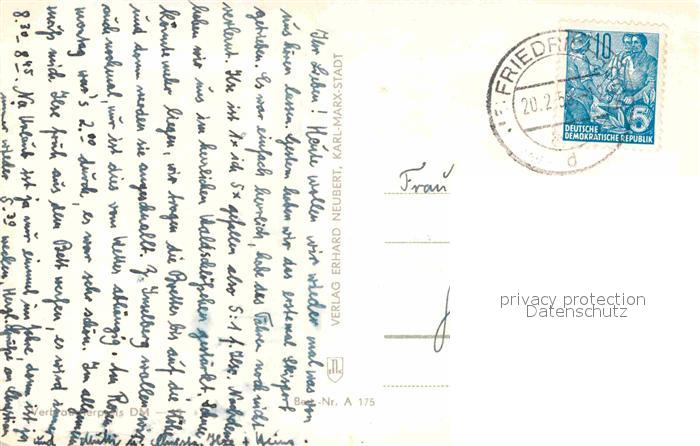 Ihr Lieben! Heute wollen wir wieder mal was von
uns hören lassen. Gestern haben wir das erstemal Skisport
getrieben. Es war einfach herrlich, habe das Fahren noch nicht
verlernt. Ilse ist 1x ich 5x gefallen also 5:1 f. Ilse. Nachdem
haben wir uns im herrlichen Waldschlößchen gestärkt. Schnee
könnte mehr liegen, wir tragen die Bretter bis auf die Höhe
und dann werden sie angeschnallt. Z. Inselberg wollen wir
auch nochmal, nur ist dies vom Wetter abhängig. Am Rosen-
montag war's 2.00 durch, es war sehr schön. Im allgem.
muß mich Ilse früh aus dem Bett werfen, es wird immer
8.30 - 8.45. Na Urlaub ist ja nur einmal im Jahre, dann ist ja
immer wieder 5.39 wecken. Herzl. Grüße an
Mutter u. Ilse + Heinz
VERLAG ERHARD NEUBERT, KARL-MARX-STADT
Best.-Nr. A 175
Verbraucherpreis DM
FRIEDRICH
20.2.5
d
10
5
DEUTSCHE
DEMOKRATISCHE REPUBLIK
Frau
privacy protection
Datenschutz